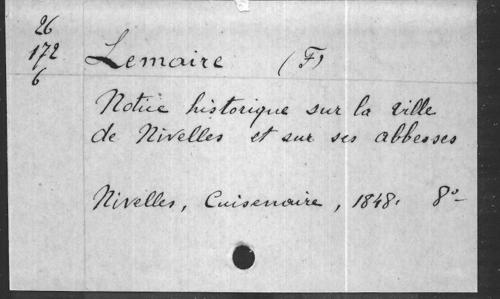 26
172
6
Lemaire (F)
Notice historique sur la ville
de Nivelles et sur ses abbesses
Nivelles, Cuisenaire, 1848. 8°